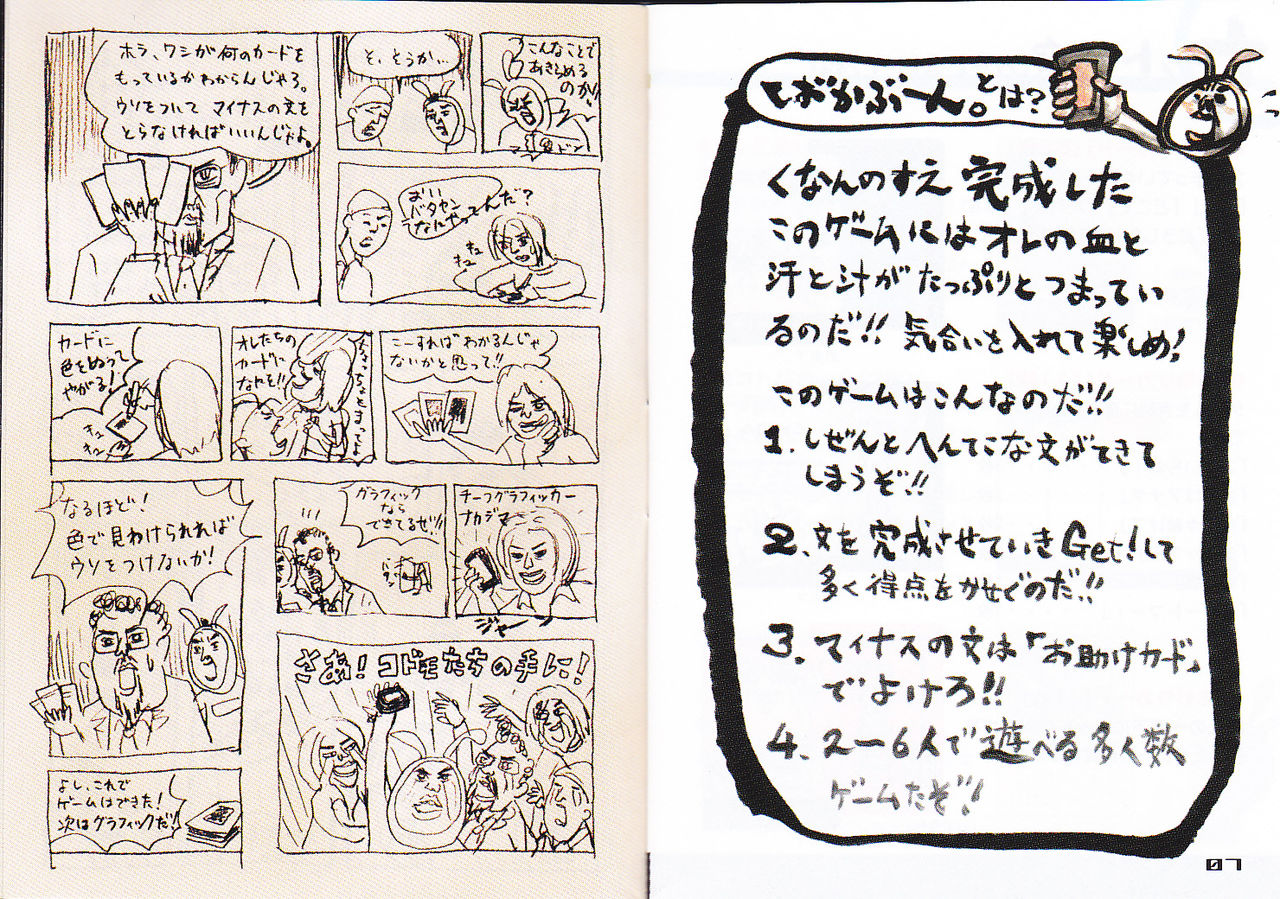 ホラ、ワシが何のカードを
もっているかわからんじゃろ。
ウソをついて マイナスの文を
とらなければいいんじゃよ。
そ、そうか…
こんなことで
あきらめる
のか!
おい
バタヤン
なんやってんだ?
キュ
キュ
カードに
色をぬって
やがる!
キュッ
キュッ
オレたちの
カードに
なにを!!
ちょっとまってよ
こーすれば わかるんじゃ
ないかと思って!!
なるほど!
色で見わけられれば
ウソをつけないか!
グラフィック
なら
できてるぜ!!
チーフグラフィッカー
ナカジマ
ジャーン
よし、これで
ゲームはできた!
次はグラフィックだ!
さあ! コドモたちの手に!
とは?
くなんのすえ 完成した
このゲームにはオレの血と
汗と汁が たっぷりと つまってい
るのだ!! 気合いを入れて楽しめ!
このゲームはこんなのだ!!
1. しぜんと へんてこな文ができて
しまうぞ!!
2. 文を完成させていき Get!して
多く得点をかせぐのだ!!
3. マイナスの文は「お助けカード」
でよけろ!!
4. 2〜6人で遊べる 多人数
ゲームだぞ!!
07